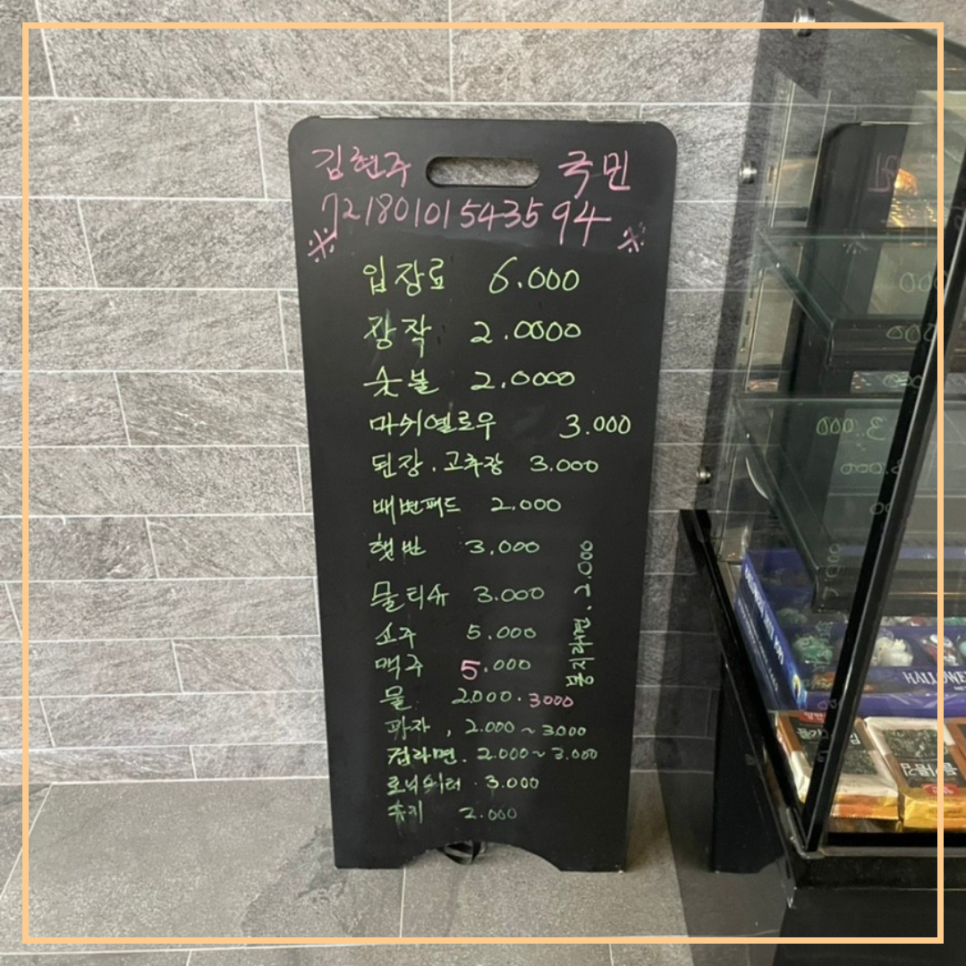 김현주 국민
72180101543594
※ ※
입장료 6.000
장작 2.0000
숯불 2.0000
마쉬멜로우 3.000
된장.고추장 3.000
배변패드 2.000
햇반 3.000
물티슈 3.000
소주 5.000
맥주 5.000
물 2.000.3000
과자, 2.000~3.000
컵라면. 2.000~3.000
3.000
휴지 2.000
봉지라면. 2.000
HALLOWEEN